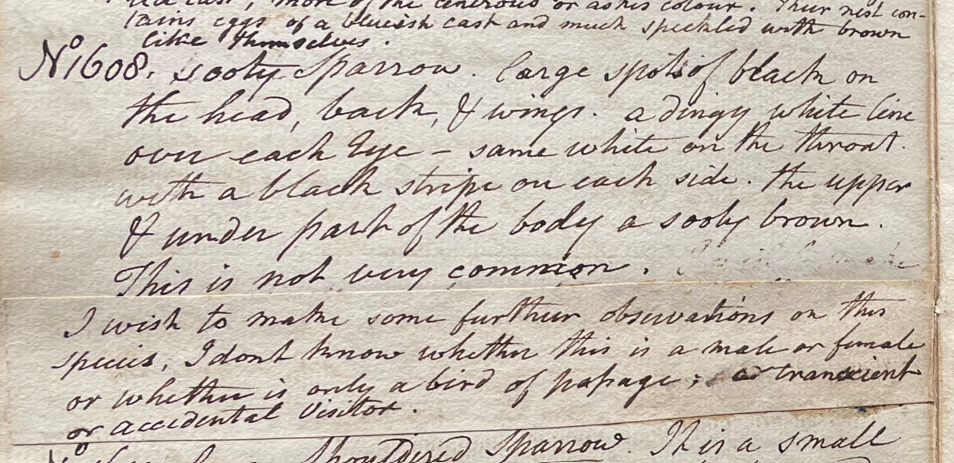 cast, more of the cinerous or ashes colour. Their nest con-
tains eggs of a blueish cast and much speckled with brown
like themselves.
No 1608. Sooty Sparrow. large spots of black on
the head, back, & wings. a dingy white line
over each Eye - same white on the throat.
with a black stripe on each side. the upper
& under part of the body a sooty brown.
This is not very common.
I wish to make some further observations on this
species, I dont know whether this is a male or female
or whether is only a bird of passage; or transcient
or accidental Visitor.
Shouldered Sparrow. It is a small